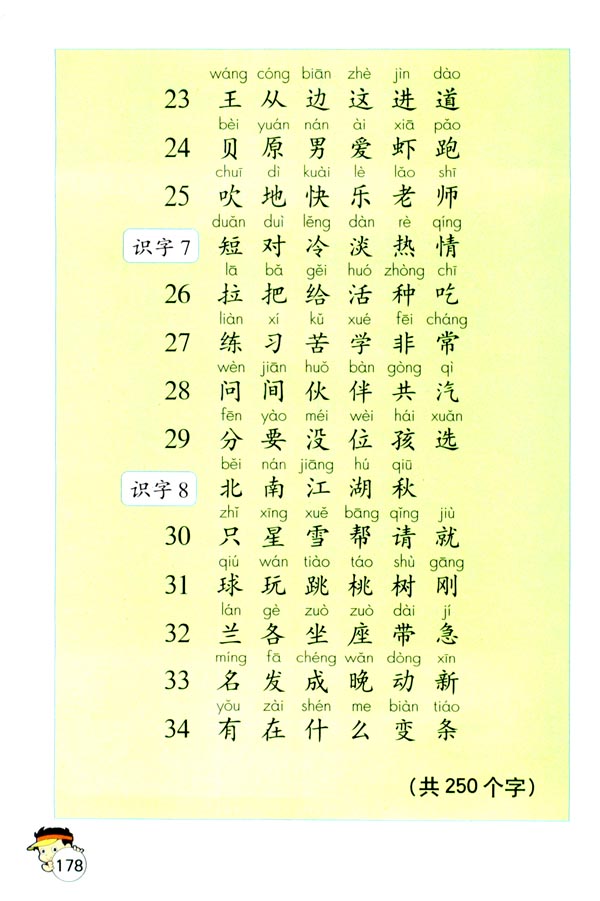 wáng cóng biān zhè jìn dào
23 王 从 边 这 进 道
bèi yuán nán ài xiā pǎo
24 贝 原 男 爱 虾 跑
chuī dì kuài lè lǎo shī
25 吹 地 快 乐 老 师
duǎn duì lěng dàn rè qíng
识字 7 短 对 冷 淡 热 情
lā bǎ gěi huó zhòng chī
26 拉 把 给 活 种 吃
liàn xí kǔ xué fēi cháng
27 练 习 苦 学 非 常
wèn jiān huǒ bàn gòng qì
28 问 间 伙 伴 共 汽
fēn yào méi wèi hái xuǎn
29 分 要 没 位 孩 选
běi nán jiāng hú qiū
识字 8 北 南 江 湖 秋
zhǐ xīng xuě bāng qǐng jiù
30 只 星 雪 帮 请 就
qiú wán tiào táo shù gāng
31 球 玩 跳 桃 树 刚
lán gè zuò zuò dài jí
32 兰 各 坐 座 带 急
míng fā chéng wǎn dòng xīn
33 名 发 成 晚 动 新
yǒu zài shén me biàn tiáo
34 有 在 什 么 变 条
(共 250 个字)
178